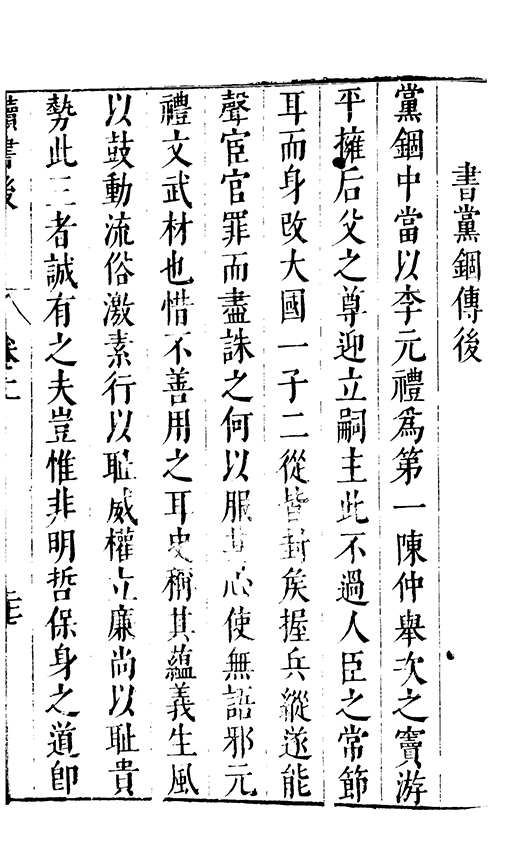 書黨錮傳後
黨錮中當以李元禮為第一陳仲舉次之竇游
平擁后父之尊迎立嗣主此不過人臣之常節
耳而身改大國一子二從皆封矦握兵縱遂能
聲宦官罪而盡誅之何以服其心使無語邪元
禮文武材也惜不善用之耳史稱其蘊義生風
以鼓動流俗激素行以耻威權立廉尚以耻貴
勢此三者誠有之夫豈惟非明哲保身之道卽
讀書後
卷二